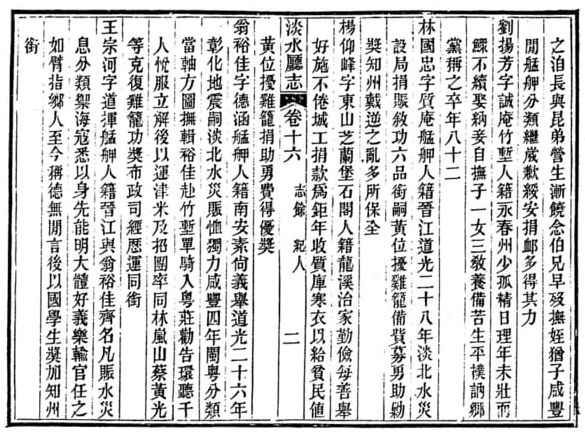 之泊長與昆弟營生漸饒念伯兄早歿撫姪猶子咸豐
間艋舺分類繼歲歉綏安捐卹多得其力
劉揚芳字誠庵竹塹人籍永春州少孤精日理年未壯而
鰥不續娶納妾自撫子一女三敎養備苦生平樸訥鄉
黨稱之卒年八十二
林國忠字質庵艋舺人籍晉江道光二十八年淡北水災
設局捐賑敘功六品銜嗣黃位擾雞籠備貲募勇助勦
獎知州戴逆之亂多所保全
楊仰峰字東山芝蘭堡石閣人籍龍溪治家勤儉每善舉
好施不倦城工捐款爲鉅年收質庫寒衣以給貧民値
淡水廳志 卷十六 志餘 紀人 二
黃位擾雞籠捐助勇費得優獎
翁裕佳字德涵艋舺人籍南安素尙義舉道光二十六年
彰化地震嗣淡北水災賑恤獨力咸豐四年閩粵分類
當軸方圖撫輯裕佳赴竹塹單騎入粵莊勸告環聽千
人忱服立解後以運津米及招團率同林嵐山蔡黃光
等克復雞籠功獎布政司經歷運同銜
王宗河字道揮艋舺人籍晉江與翁裕佳齊名凡賑水災
息分類禦海寇悉以身先能明大體好義樂輸官任之
如臂指鄉人至今稱德無閒言後以國學生獎加知州
銜